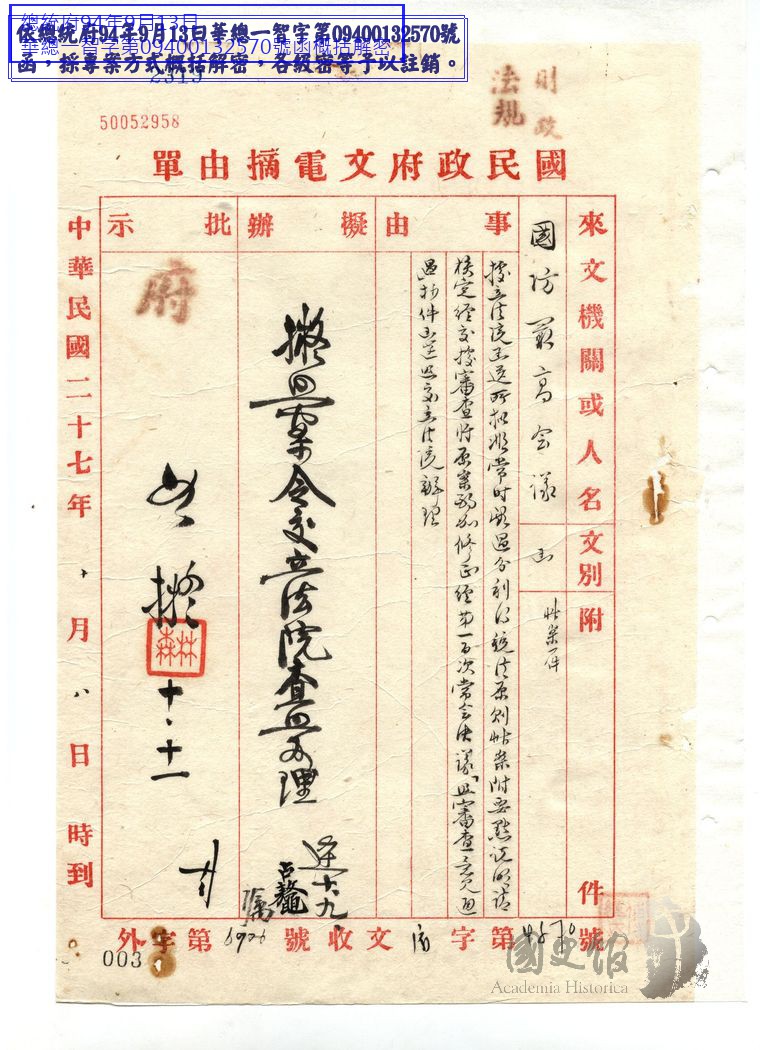 總統府94年9月13日
華總一智字第09400132570號函概括解密
依總統府94年9月13日華總一智字第09400132570號
函，採專案方式概括解密，各級密等予以註銷。
2319
50052958
財政
法規
國民政府文電摘由單
來文機關或人名
國防最高會議
文別
函
附件
草案一件
事由
據立法院函送所擬非常時期過分利得稅法原則草案附要點說明請
核定經交據審查將原案酌加修正經第一百次常會決議「照審查意見通
過抄件函達照交立法院辦理
擬辦
擬照案令交立法院查照辦理
批示
府
如擬
十、十一
中華民國二十七年十月八日 時到
外字第 號收文 字第 號
003
國史館
Academia Historica